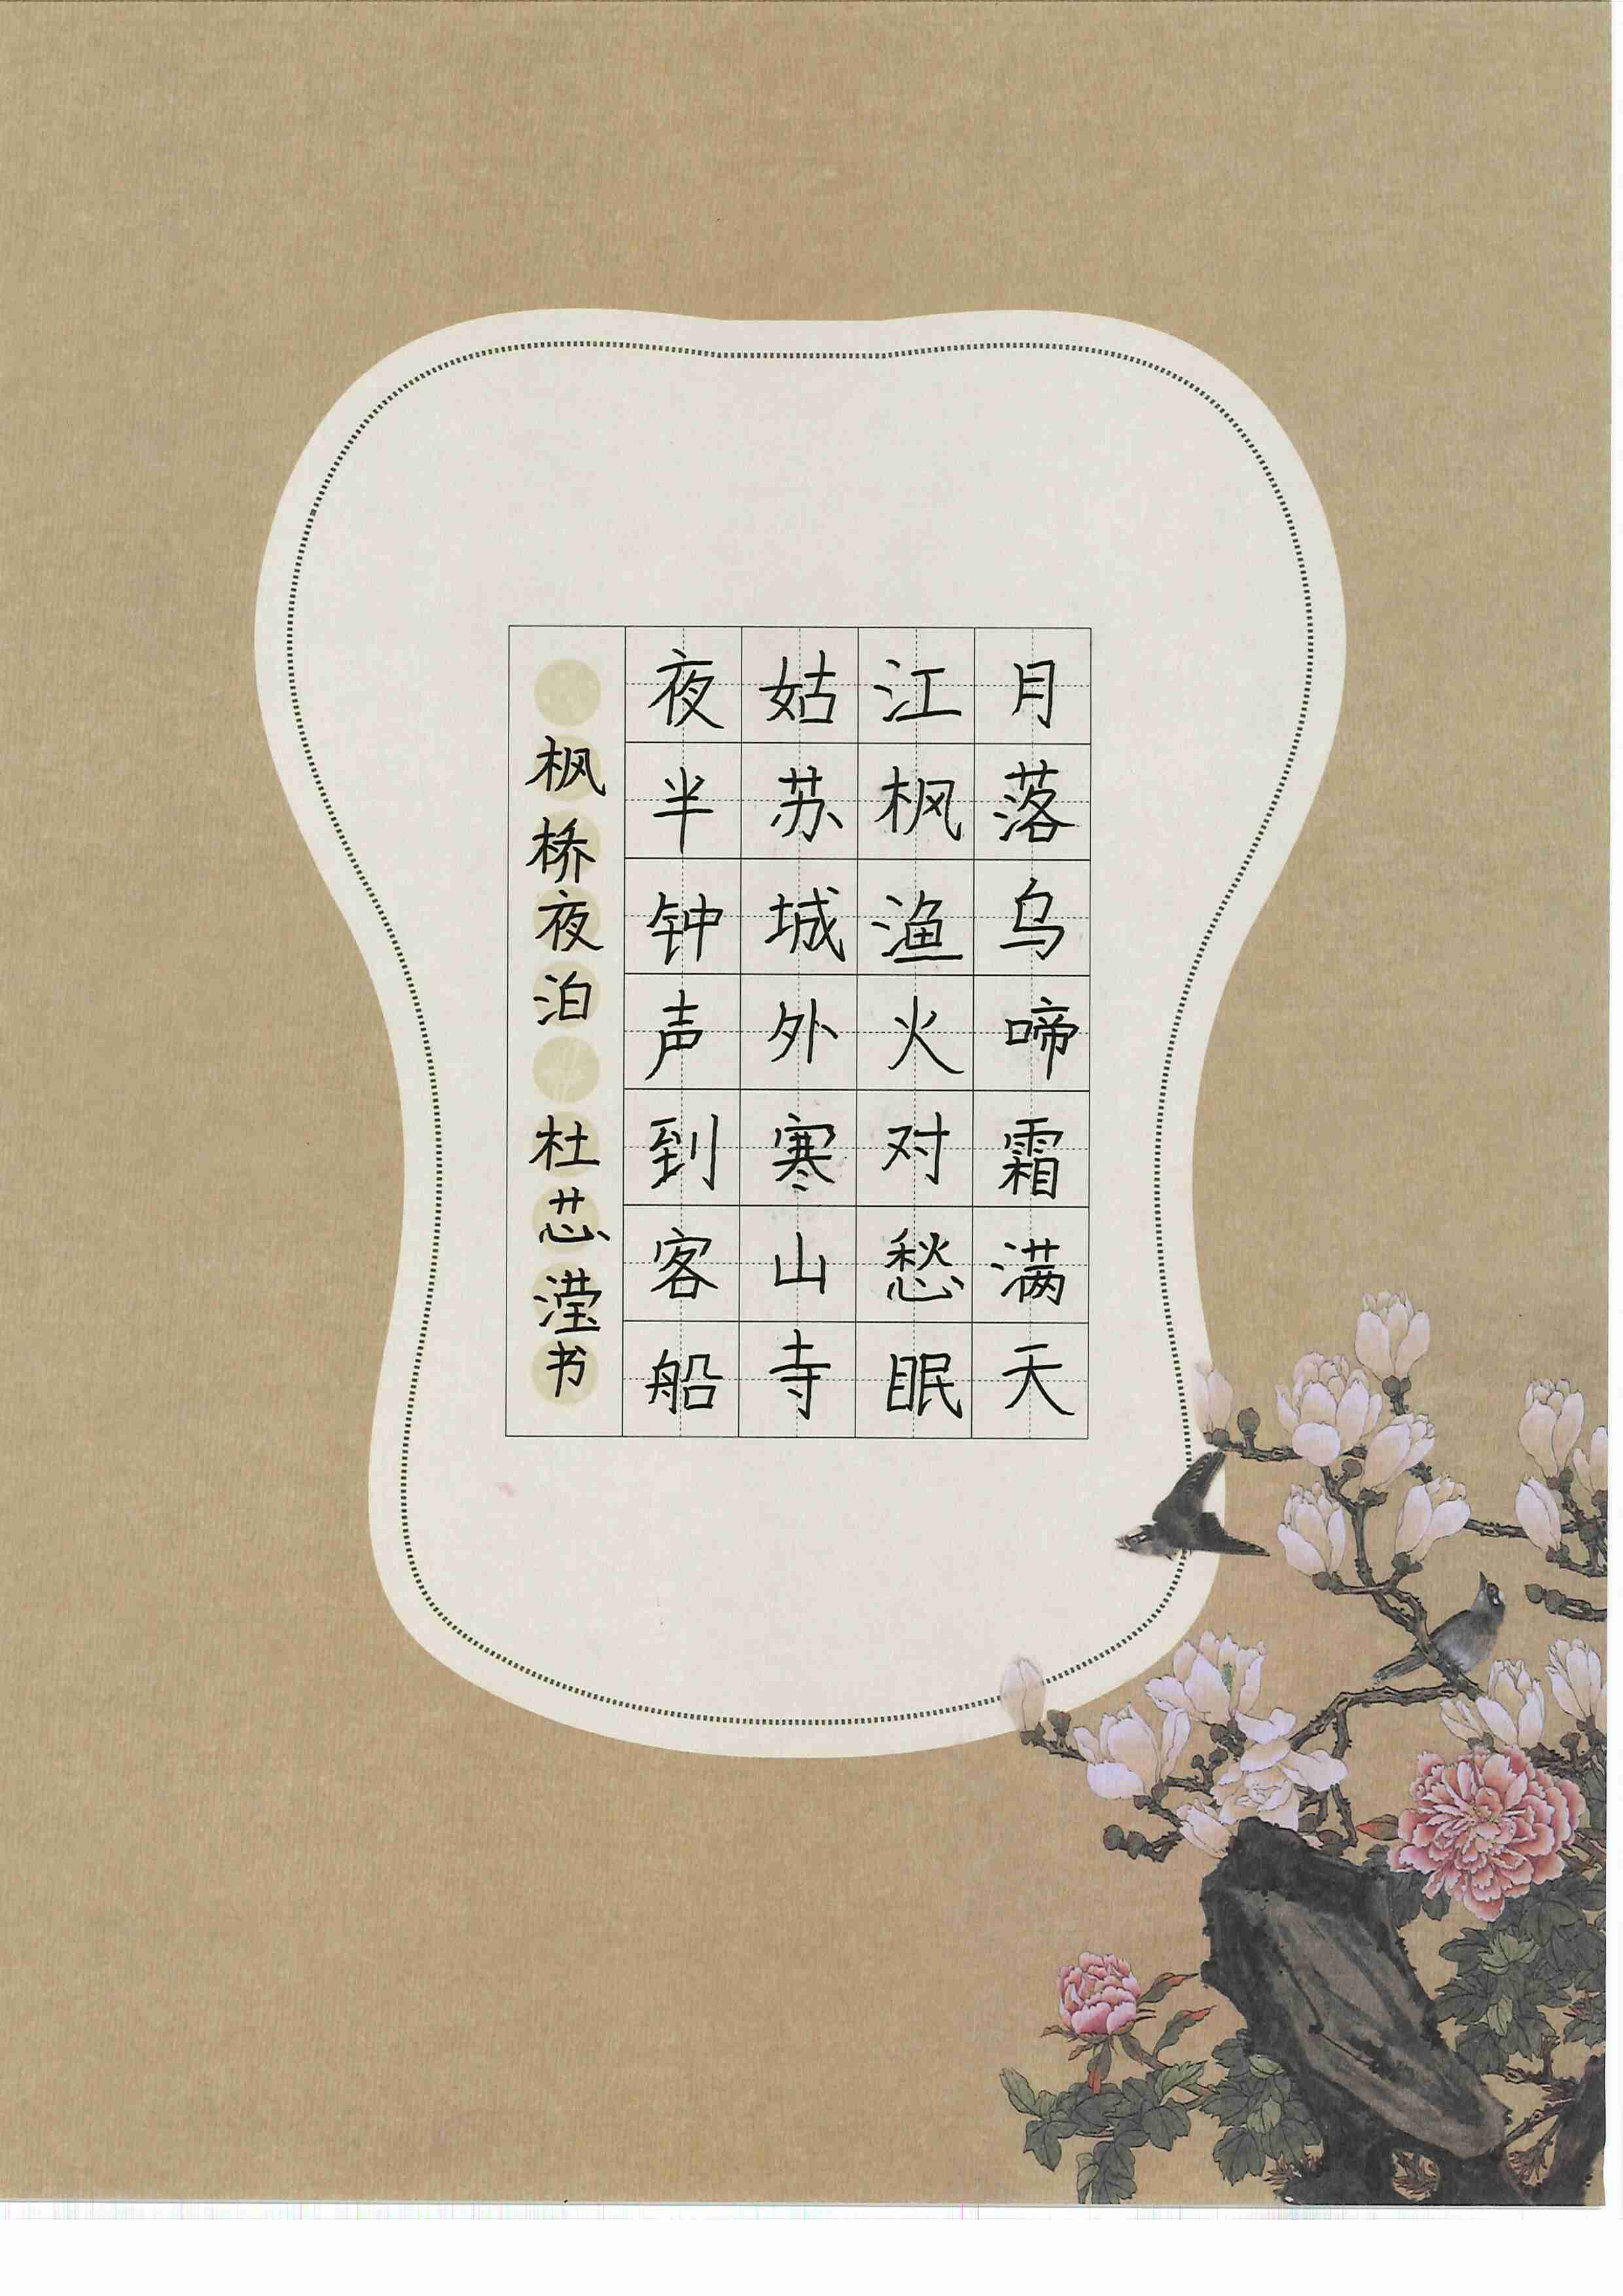 月落乌啼霜满天
江枫渔火对愁眠
姑苏城外寒山寺
夜半钟声到客船
枫桥夜泊 杜芯滢书